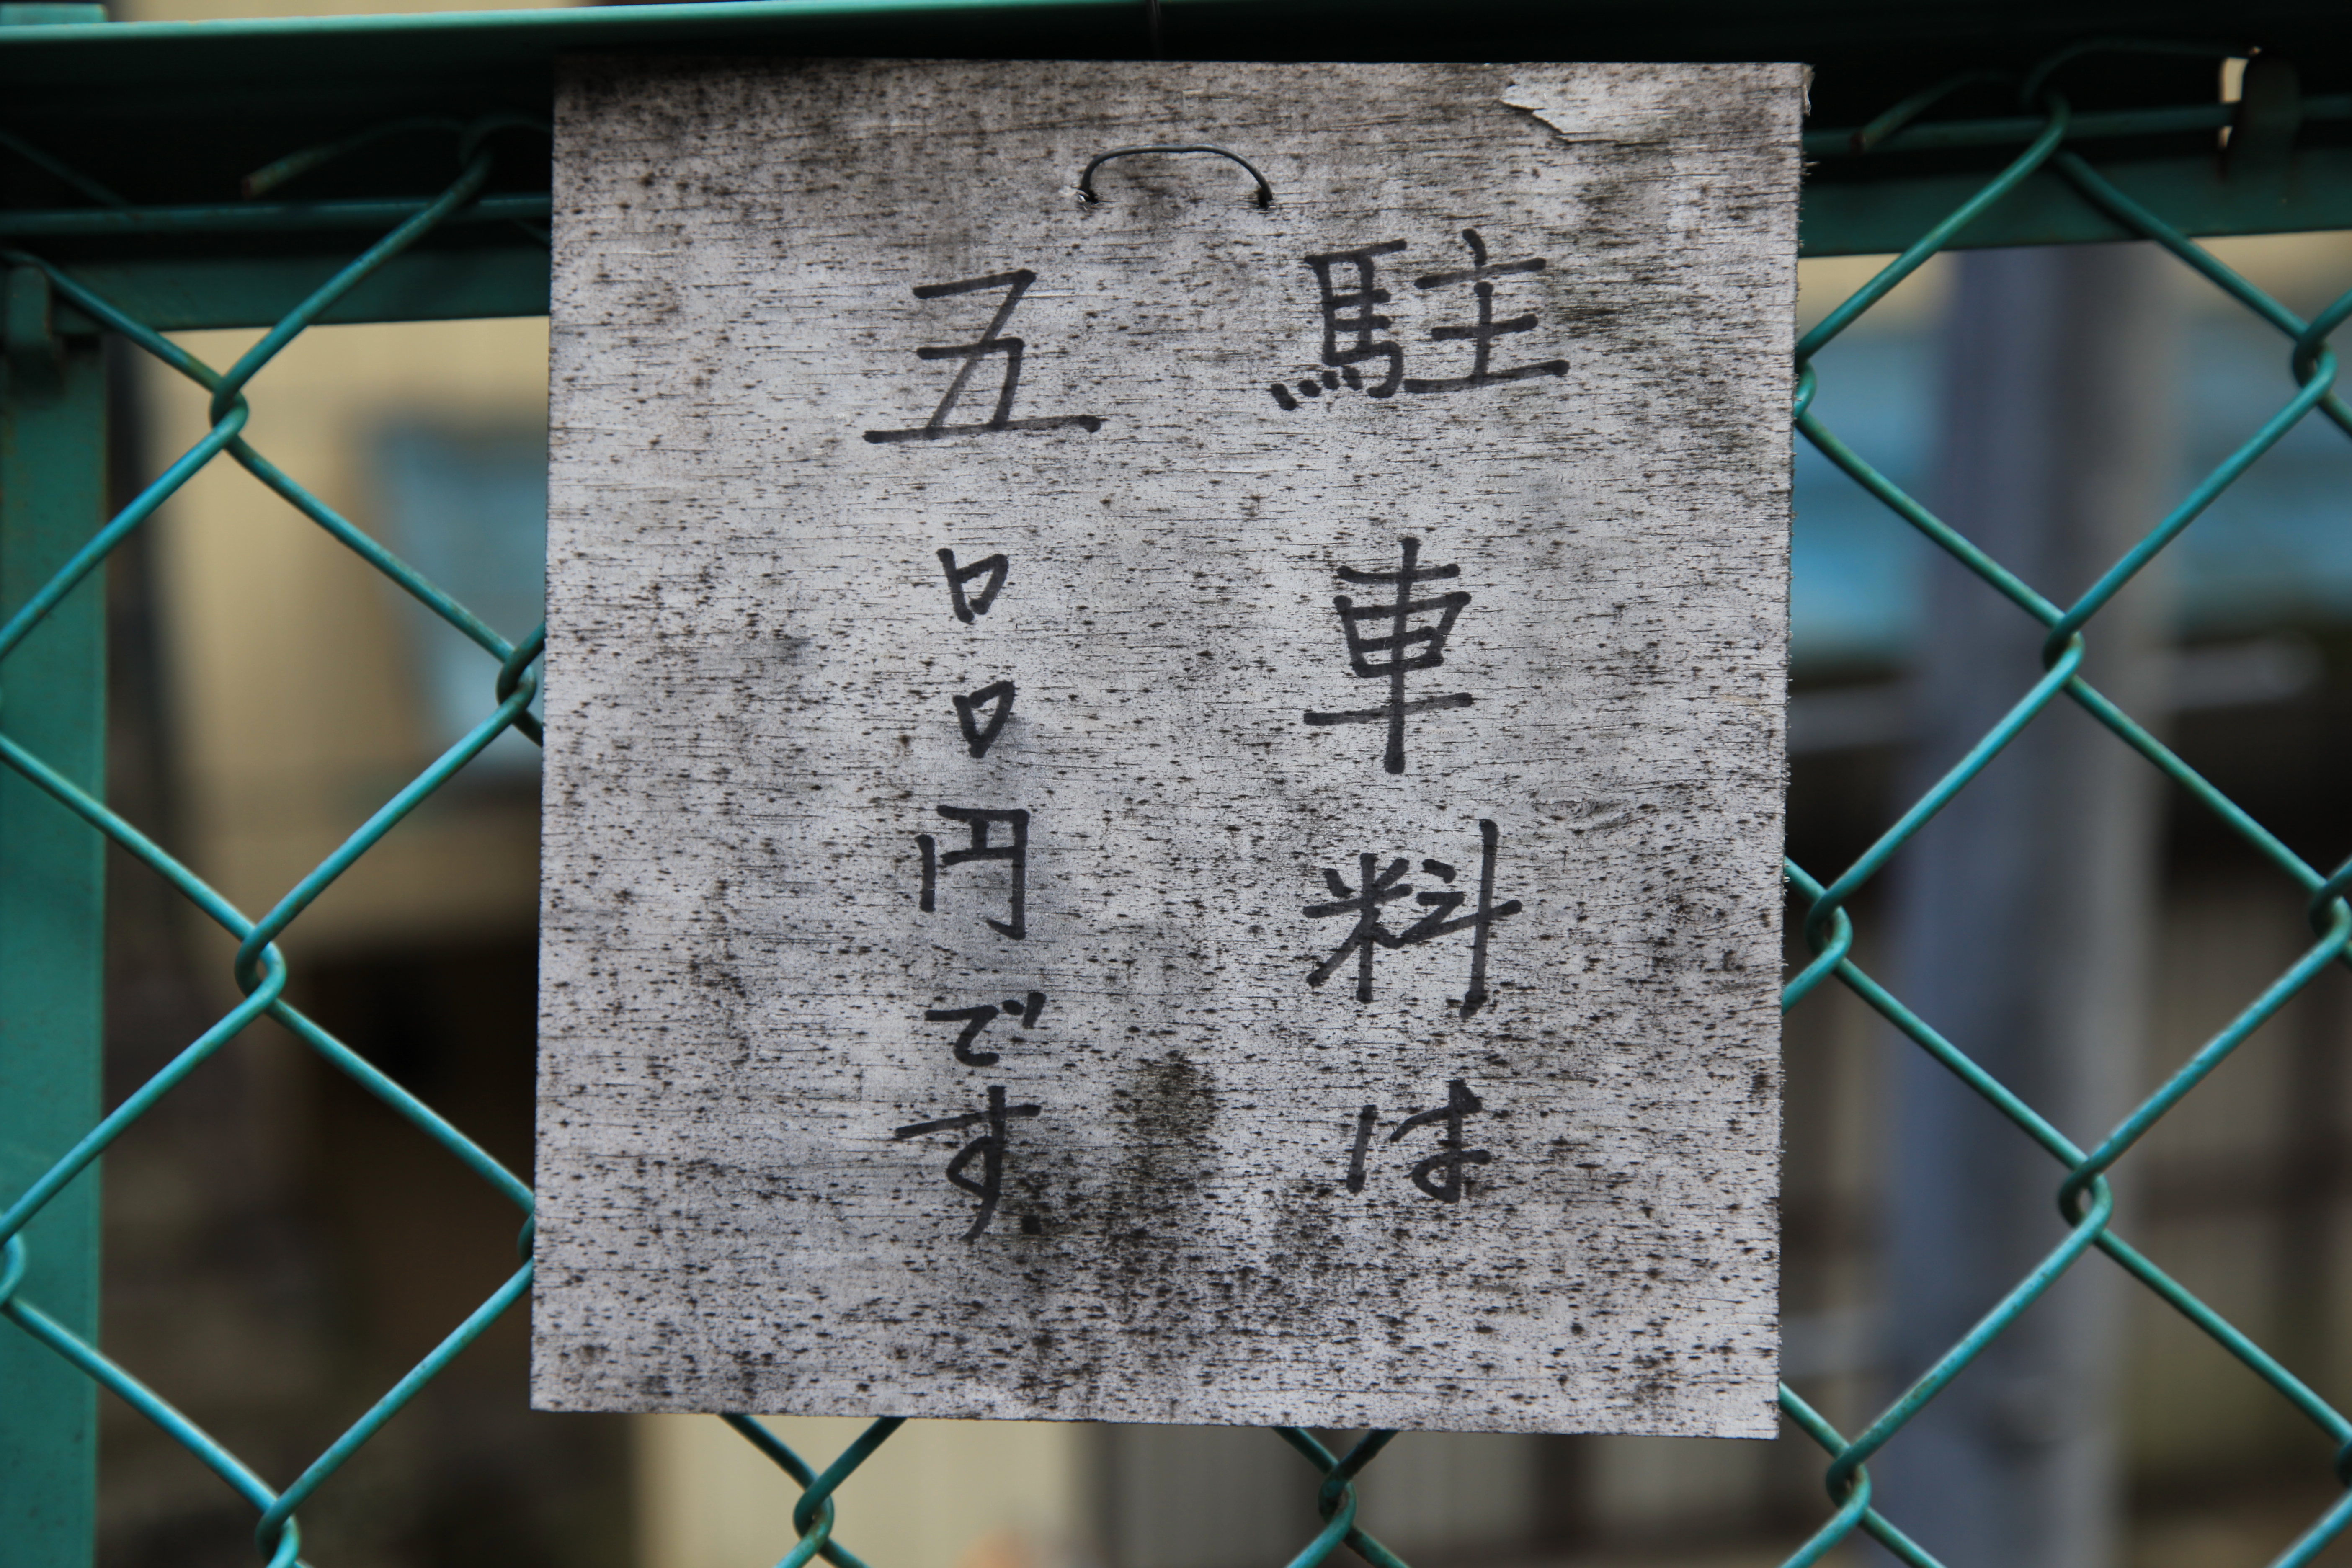 駐車料は
五〇〇円です